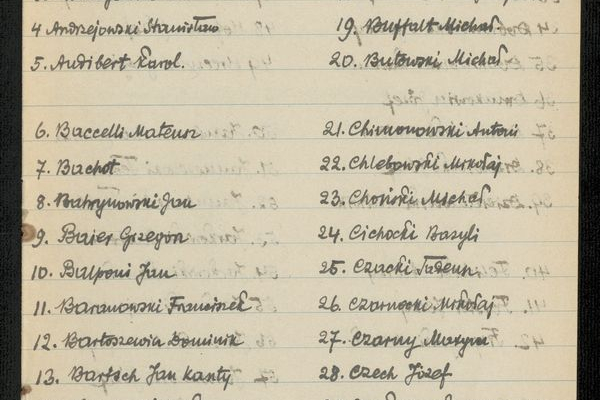 4 Andrzejowski Stanisław
5. Audibert Karol.
6. Baccelli Mateusz
7. Bachot
8. Batrynowski Jan
9. Baier Grzegorz
10. Balponi Jan
11. Baranowski Franciszek
12. Bartoszewicz Dominik
13. Bartsch Jan Kanty
19. Buffalt Michał
20. Butowski Michał
21. Chimonowski Antoni
22. Chlebowski Mikołaj
23. Chosiński Michał
24. Cichocki Bazyli
25. Czacki Tadeusz
26. Czarnocki Mikołaj
27. Czarny Maxym
28. Czech Józef